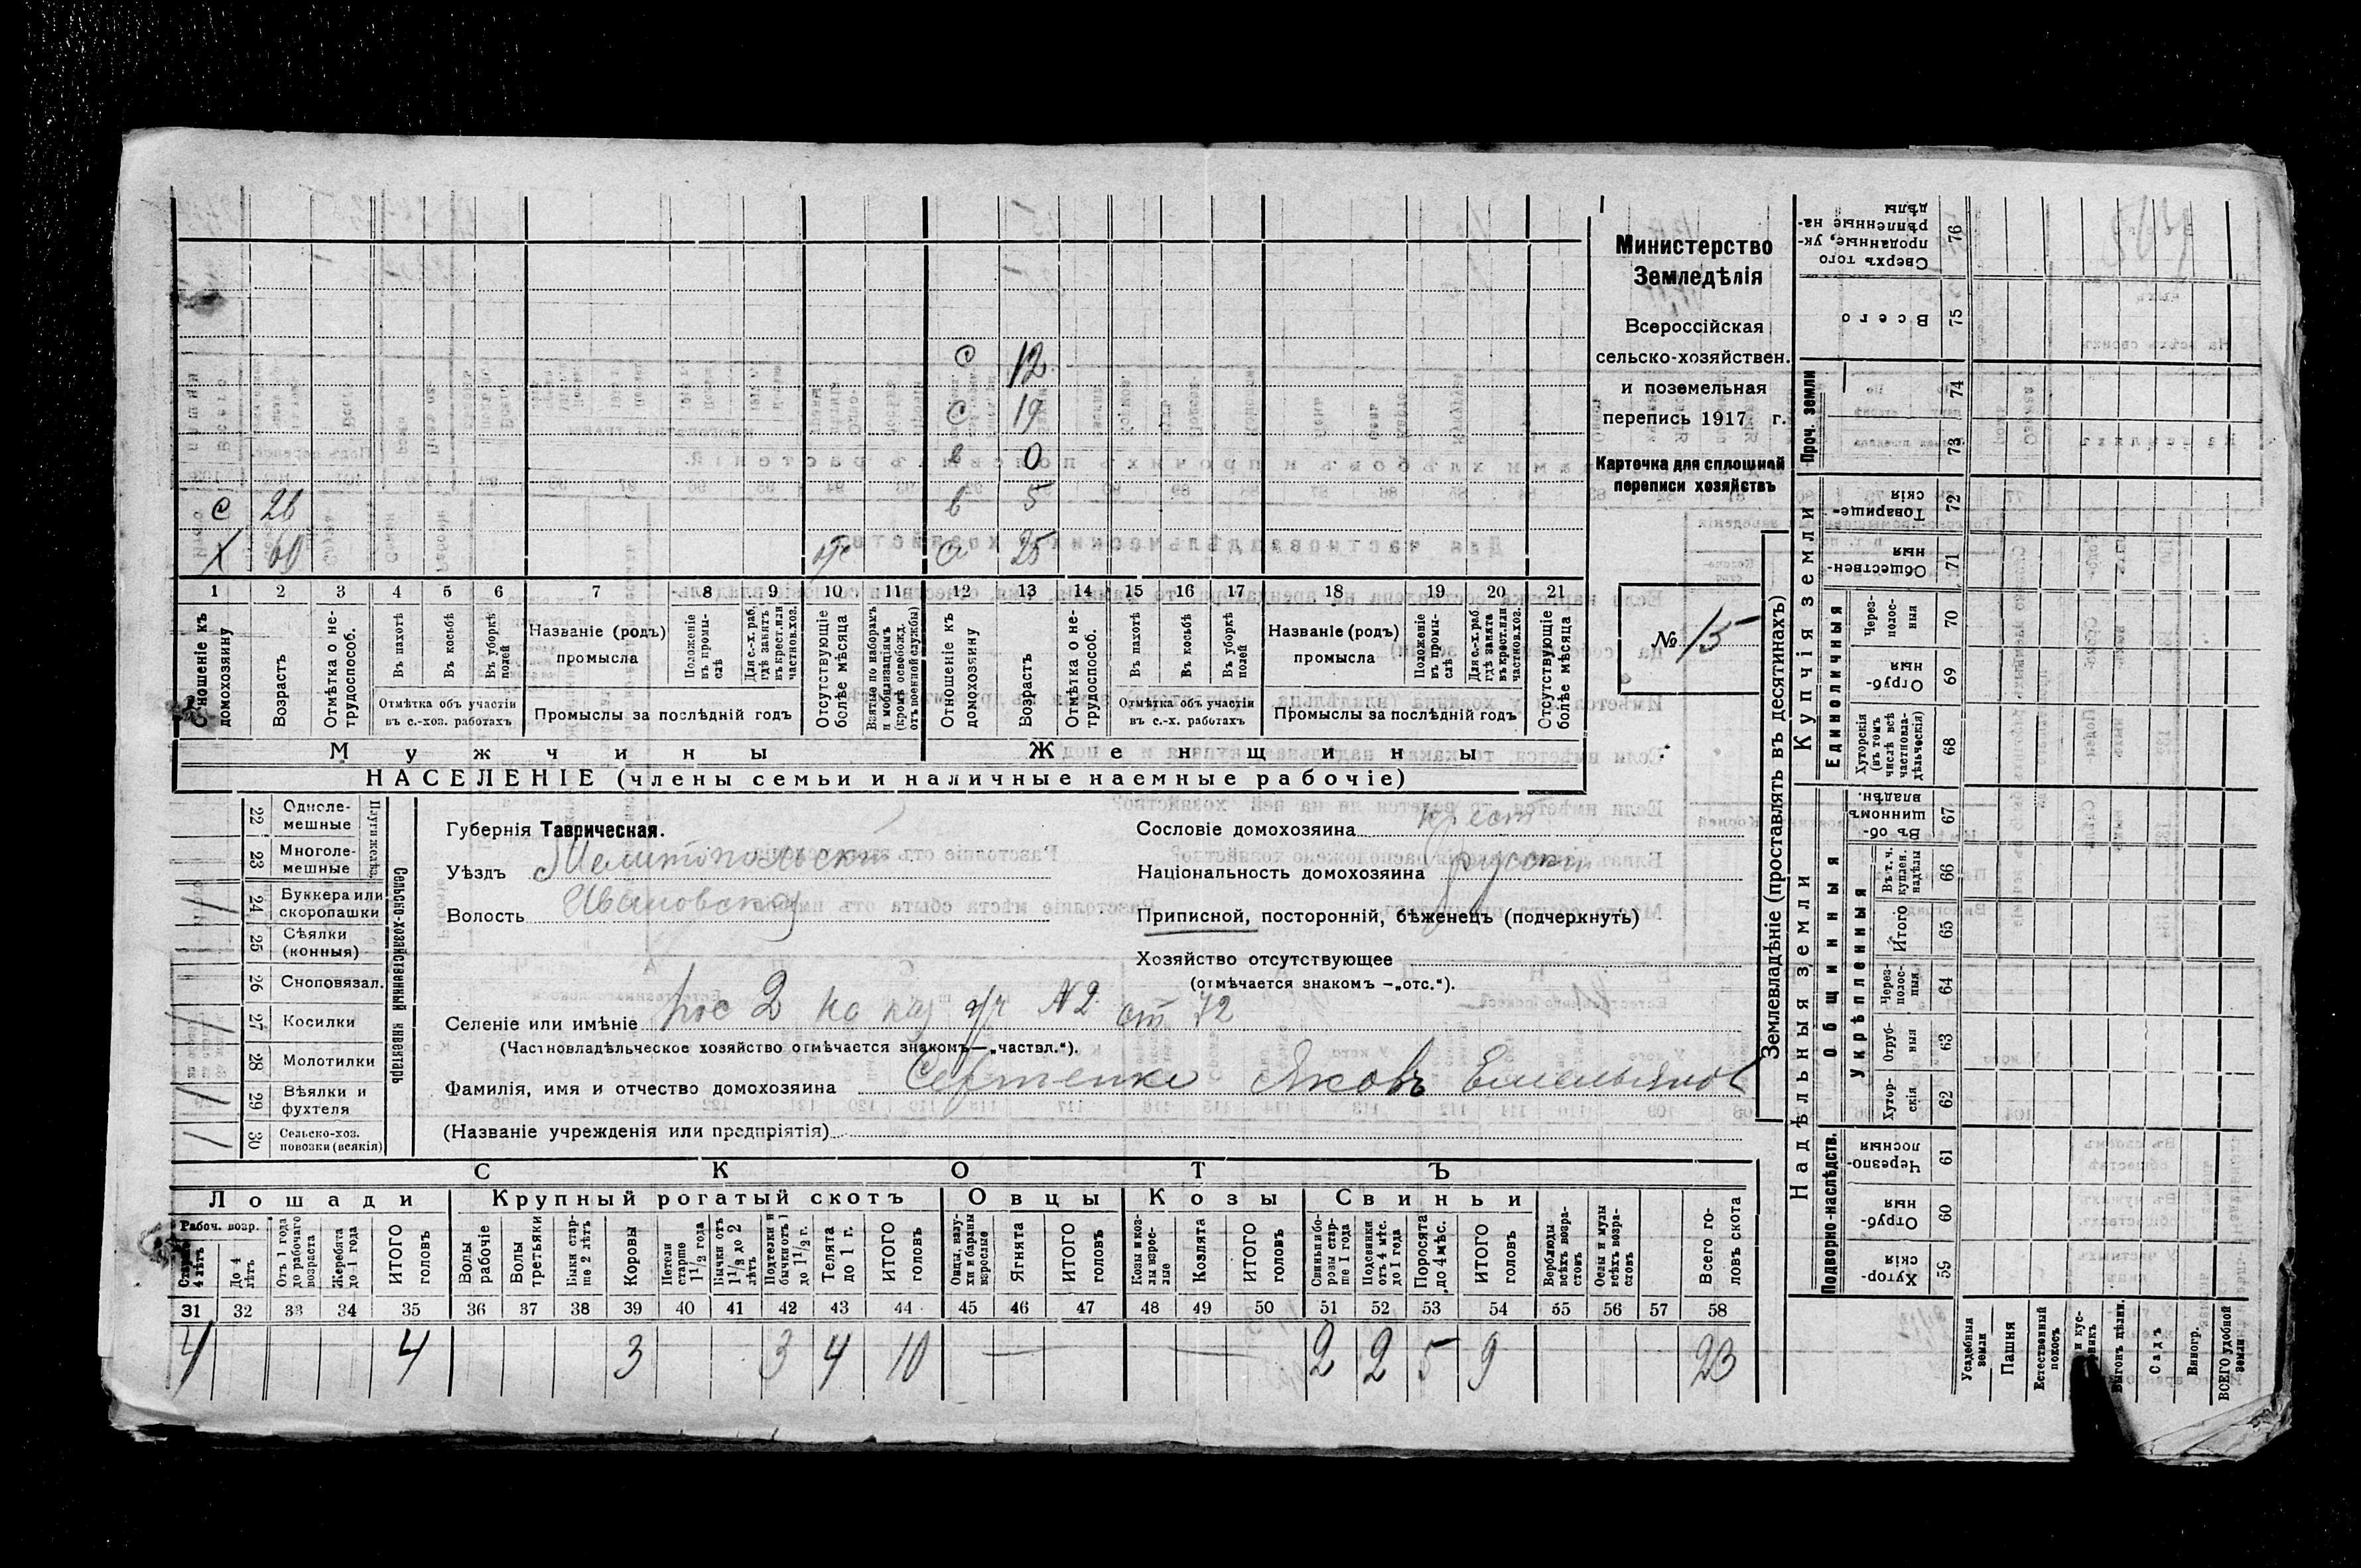 Министерство
Земледѣлія
Всероссійская
сельско-хозяйствен.
и поземельная
перепись 1917 г.
Карточка для сплошной
переписи хозяйствъ
№ 15
с 12
с 19
в 0
с 26 в 5
X 60 25
1 2 3 4 5 6 7 8 9 10 11 12 13 14 15 16 17 18 19 20 21
Отношеніе къ домохозяину
Возрастъ
Отмѣтка о нетрудоспособ.
Въ пахотѣ
Въ косьбѣ
Въ уборкѣ полей
Отмѣтка объ участіи въ с.-хоз. работахъ
Названіе (родъ) промысла
Положеніе въ промыслѣ
Для с.-х. раб. гдѣ занятъ въ крест. или частнов. хоз.
Промыслы за послѣдній годъ
Отсутствующіе болѣе мѣсяца
Взятые по наборамъ и мобилизаціямъ (кромѣ освобожд. отъ военной службы)
Отношеніе къ домохозяину
Возрастъ
Отмѣтка о нетрудоспособ.
Въ пахотѣ
Въ косьбѣ
Въ уборкѣ полей
Отмѣтка объ участіи въ с.-х. работахъ
Названіе (родъ) промысла
Положеніе въ промыслѣ
Для с.-х. раб. гдѣ занята въ крест. или частнов. хоз.
Промыслы за послѣдній годъ
Отсутствующіе болѣе мѣсяца
Мужчины Женщины
НАСЕЛЕНІЕ (члены семьи и наличные наемные рабочіе)
Сельско-хозяйственный инвентарь
22 Одноле-мешные
23 Многоле-мешные
24 Буккера или скоропашки
25 Сѣялки (конныя)
26 Сноповязал.
27 Косилки
28 Молотилки
29 Вѣялки и фухтеля
30 Сельско-хоз. повозки (всякія)
Губернія Таврическая.
Уѣздъ Мелитопольски
Волость Ивановская
Сословіе домохозяина крест
Національность домохозяина русски
Приписной, посторонній, бѣженецъ (подчеркнуть)
Хозяйство отсутствующее
(отмѣчается знакомъ —„отс.“).
Селеніе или имѣніе пос 2 на каз уч № 2 от 72
(Частновладѣльческое хозяйство отмѣчается знакомъ—„частвл.“).
Фамилія, имя и отчество домохозяина Яковъ Емельянов
(Названіе учрежденія или предпріятія)
СКОТЪ
Лошади Крупный рогатый скотъ Овцы Козы Свиньи
Рабоч. возр.
Старше 4 лѣтъ
До 4 лѣтъ
Отъ 1 года до рабочаго возраста
Жеребята до 1 года
ИТОГО головъ
Волы рабочіе
Волы третьяки
Быки старше 2 лѣтъ
Коровы
Нетели старше 1 1/2 года
Бычки отъ 1 1/2 до 2 лѣтъ
Подтелки и бычки отъ 1 до 1 1/2 г.
Телята до 1 г.
ИТОГО головъ
Овцы, валухи и бараны взрослые
Ягнята
ИТОГО головъ
Козы и козлы взрослые
Козлята
ИТОГО головъ
Свиньи и боровы старше 1 года
Подсвинки отъ 4 мѣс. до 1 года
Поросята до 4 мѣс.
ИТОГО головъ
Верблюды всѣхъ возрастовъ
Ослы и мулы всѣхъ возрастовъ
Всего головъ скота
31 32 33 34 35 36 37 38 39 40 41 42 43 44 45 46 47 48 49 50 51 52 53 54 55 56 57 58
4 4 3 3 4 10 — — 2 2 5 9 23
Землевладѣніе (проставлять въ десятинахъ)
Надѣльныя земли Купчія земли Проч. земли
Подворно-наслѣдств. Общинныя Единоличныя
Укрѣпленныя
Сверхъ того проданные, укрѣпленные надѣлы 76
Всего 75
74
73
Товарищескія 72
Общественныя 71
Черезполосныя 70
Отрубныя 69
Хуторскія (въ томъ числѣ всѣ частновладѣльческія) 68
Въ общинномъ владѣн. 67
Въ т. ч. куплен. надѣлы 66
Итого 65
Черезполосныя 64
Отрубныя 63
Хуторскія 62
Черезполосныя 61
Отрубныя 60
Хуторскія 59
Усадебныя земли
Пашня
Естественный покосъ
Выгонъ дѣлин.
Садъ
Виногр.
ВСЕГО удобной земли